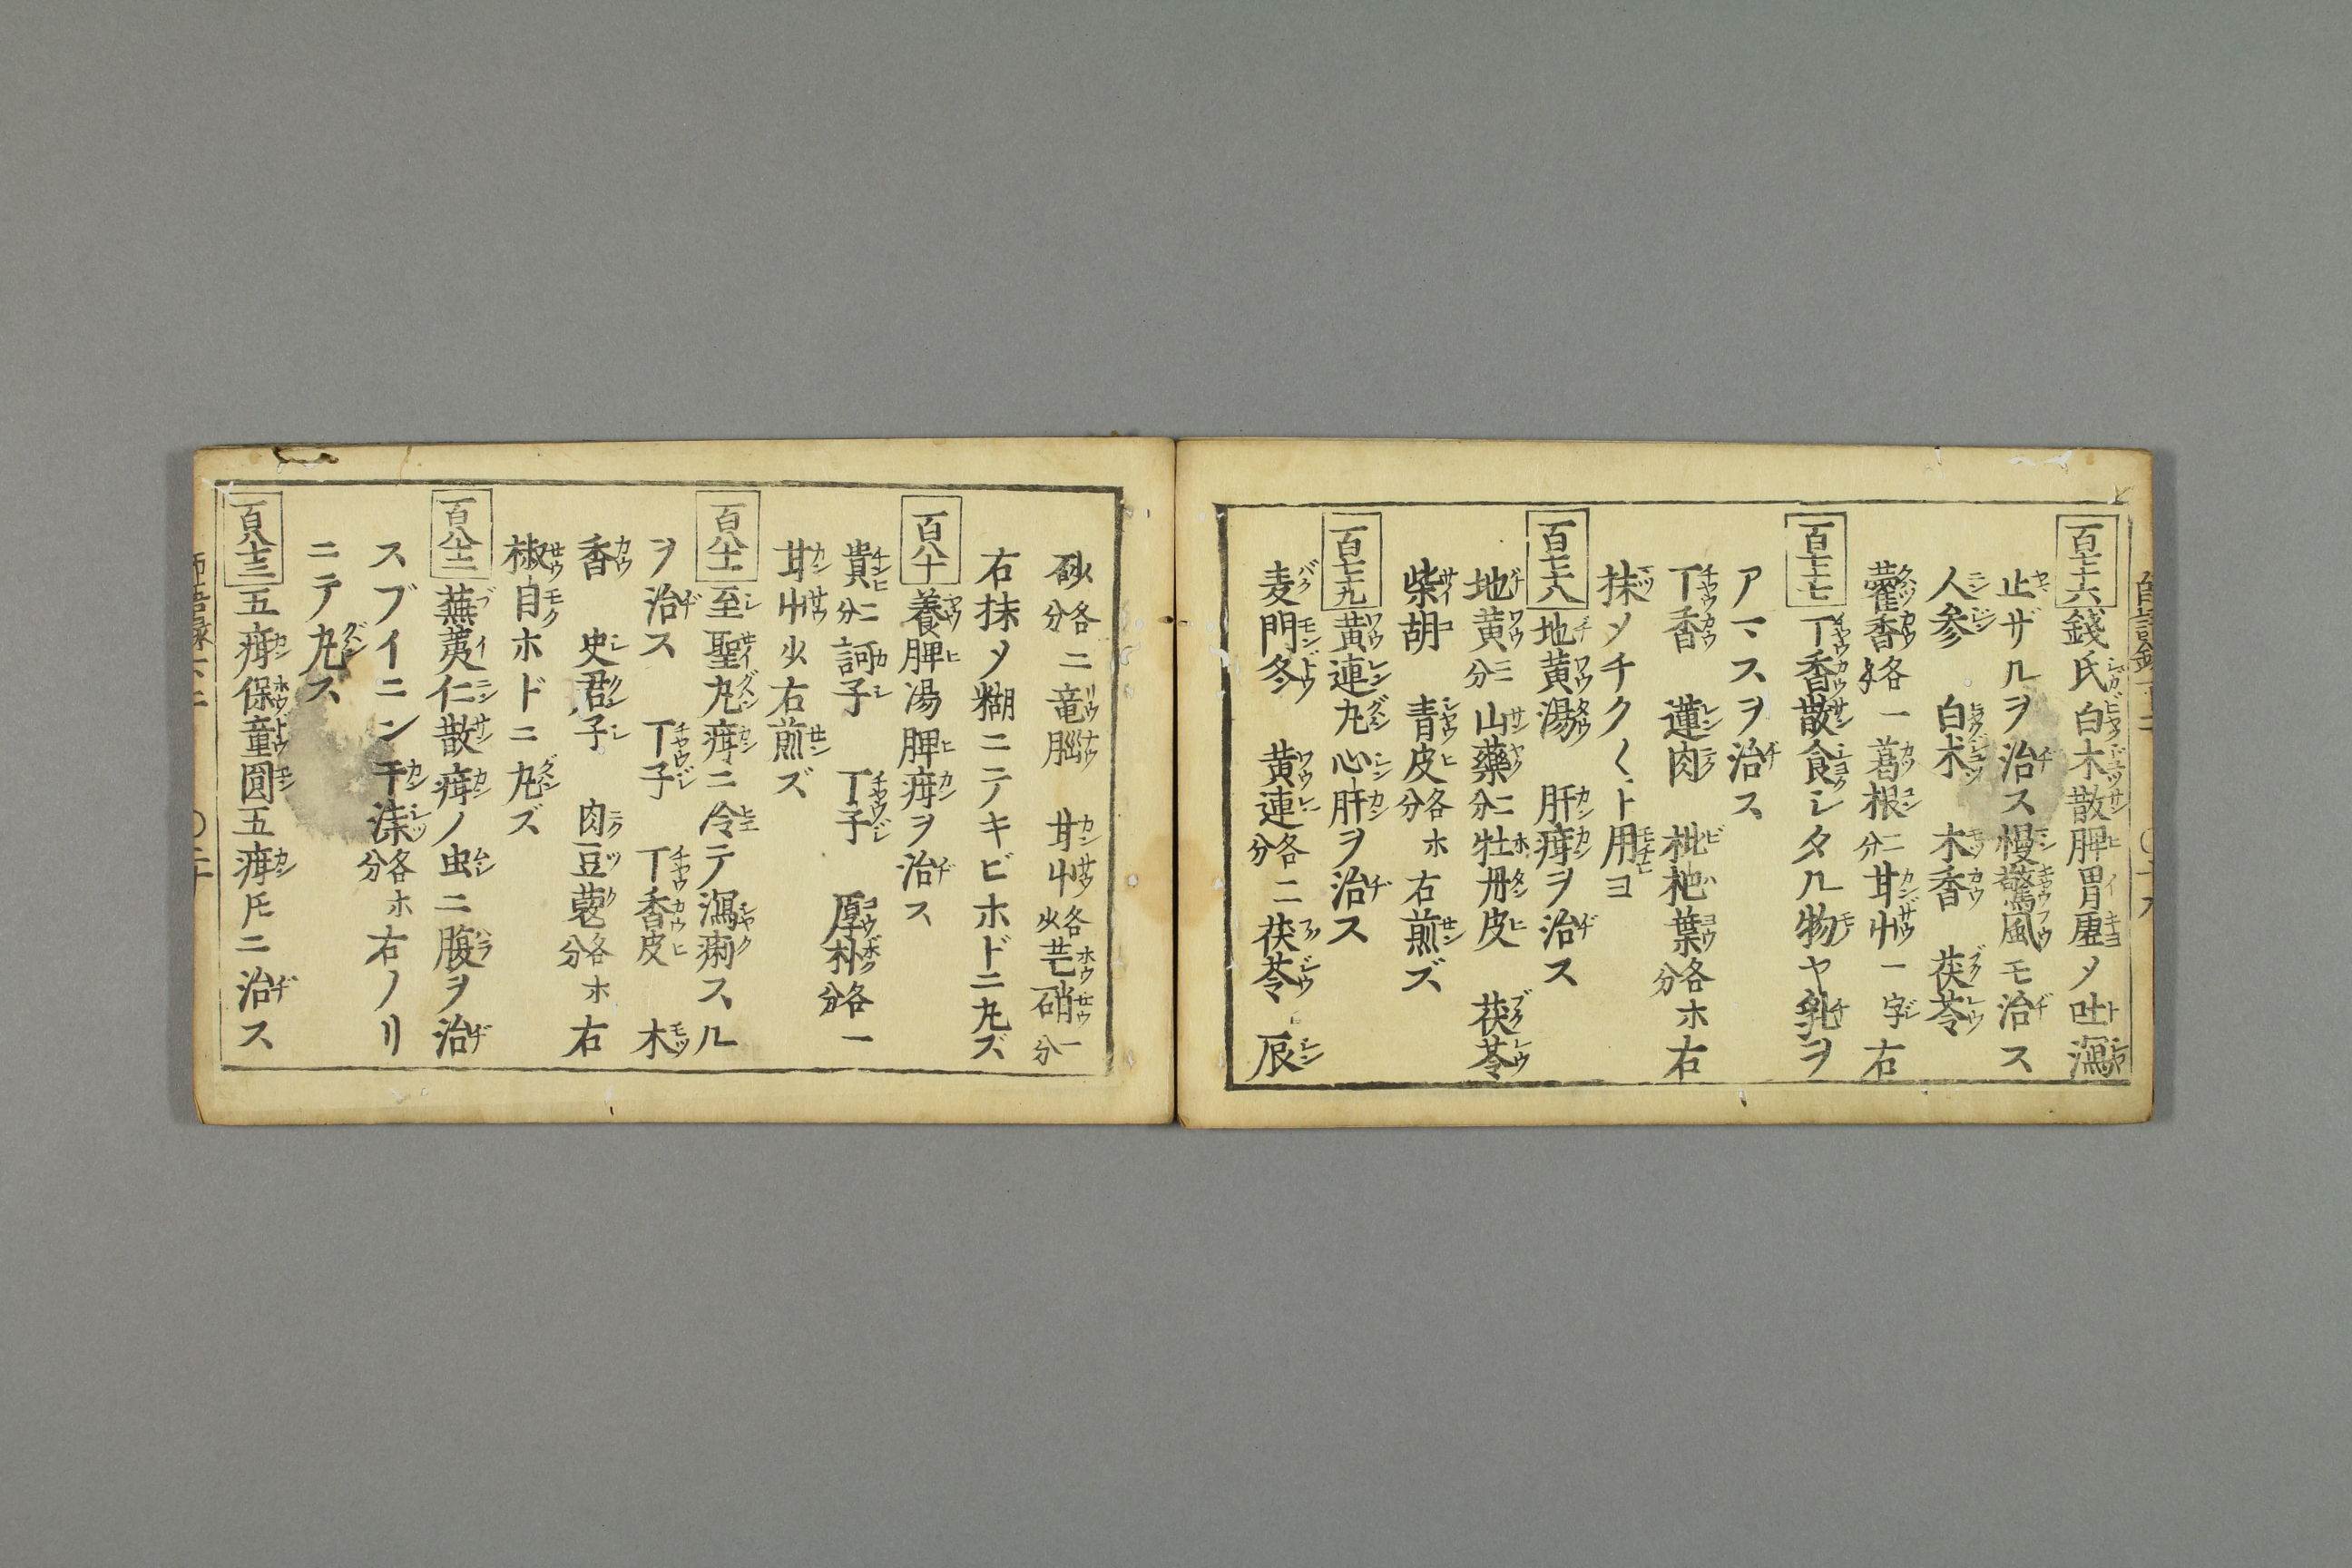 百七十六 錢氏白木散脾胃虛メ吐瀉
止ザルヲ治ス慢驚風モ治ス
人参 白朮 木香 茯苓
藿香各一葛根二分甘艸一字右
百七十七 丁香散食シタル物ヤ乳ヲ
アマスヲ治ス
丁香 蓮肉 枇杷葉各分ホ右
抹メチク〱ト用ヨ
百七十八 地黄湯 肝疳ヲ治ス
地黄三分山藥二分牡丹皮 茯苓
柴胡 青皮各分ホ右煎ズ
百七十九 黄連丸心肝ヲ治ス
麦門冬 黄連各分二茯苓 辰
砂各分二竜脳 甘艸各少芒硝一分
右抹メ糊ニテキビホドニ丸ズ
百八十 養脾湯脾疳ヲ治ス
貴二分訶子 丁子 厚朴各一分
甘艸少右煎ズ
百八十一 至聖丸疳ニ冷テ瀉痢スル
ヲ治ス 丁子 丁香皮 木
香 史君子 肉豆蔲各分ホ右
椒目ホドニ丸ズ
百八十二 蕪荑仁散疳ノ虫ニ腹ヲ治
スブイニン干漆各分ホ右ノリ
ニテ丸ス
百八十三 五疳保童圓五疳ニ治ス